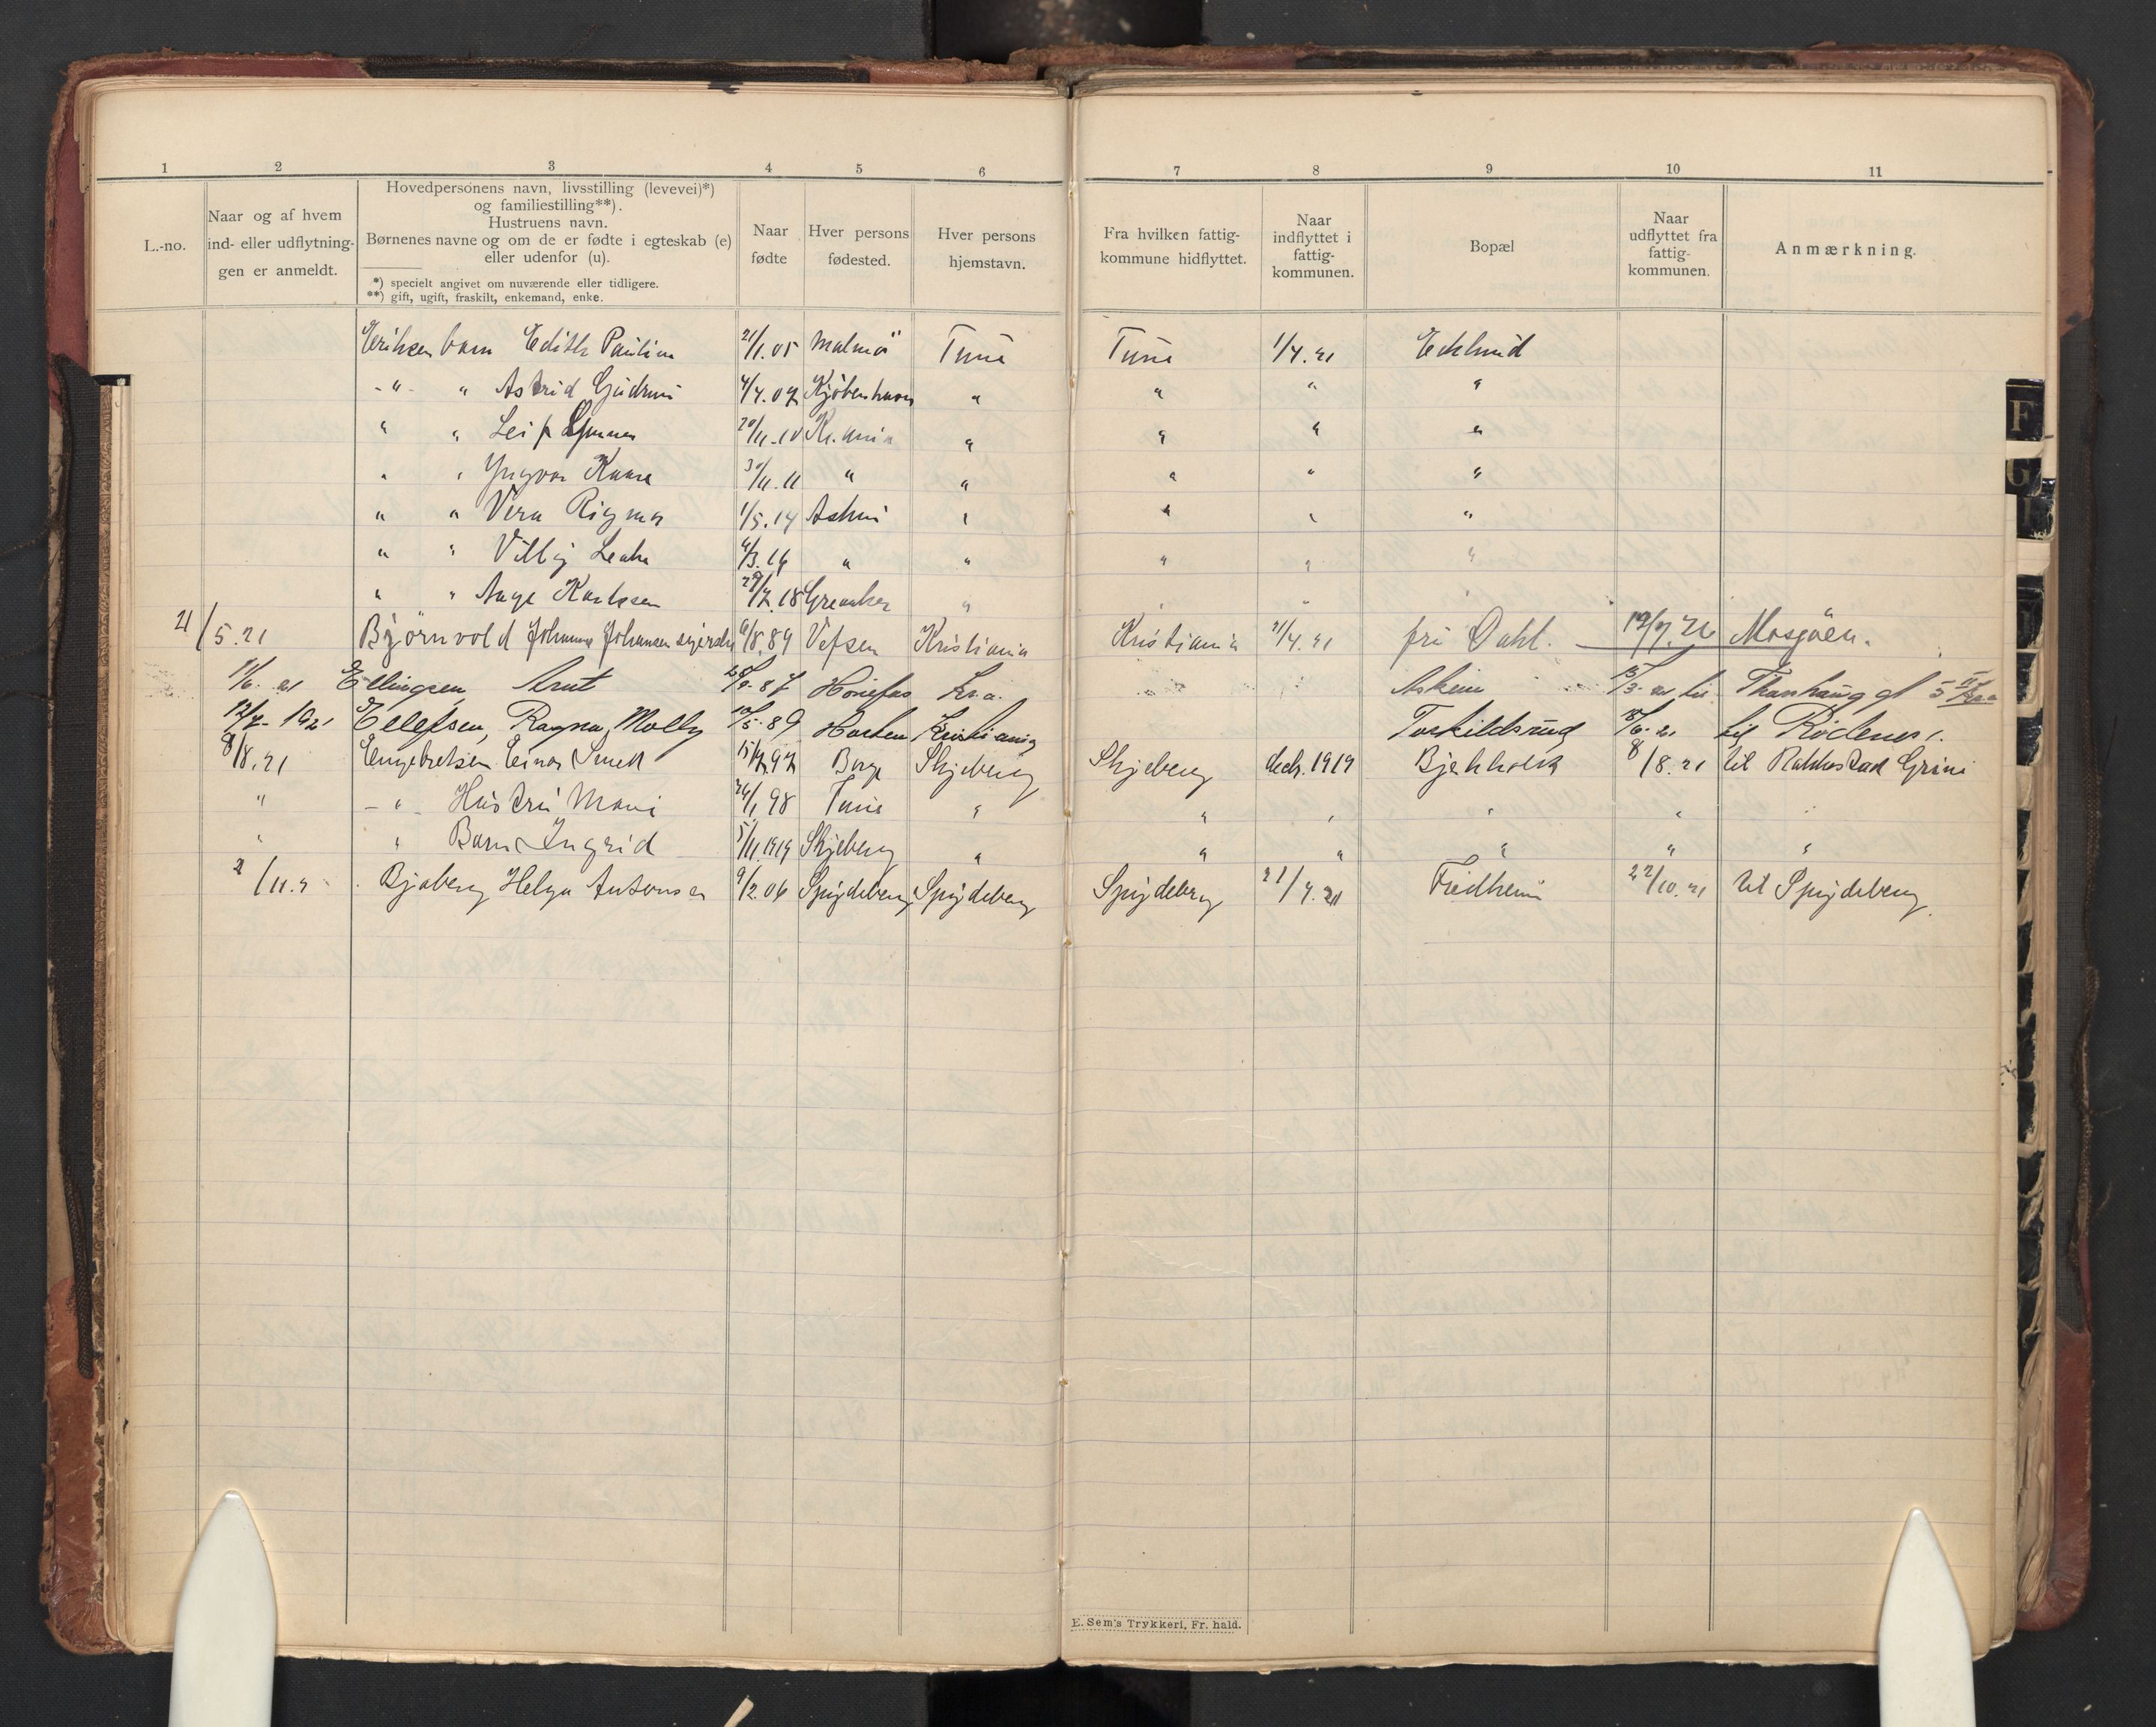 1 2 3 4 5 6 7 8 9 10 11
L.-no.
Naar og af hvem
ind- eller udflytnin-
gen er anmeldt.
Hovedpersonens navn, livsstilling (levevei)*)
og familiestilling**).
Hustruens navn.
Børnenes navne og om de er fødte i egteskab (e)
eller udenfor (u).
*) specielt angivet om nuværende eller tidligere.
**) gift, ugift, fraskilt, enkemand, enke.
Naar
fødte
Hver persons
fødested.
Hver persons
hjemstavn.
Fra hvilken fattig-
kommune hidflyttet.
Naar
indflyttet i
fattig-
kommunen.
Bopæl
Naar
udflyttet fra
fattig-
kommunen.
Anmærkning.
Eriksen barn Edith Paulina 21/1.05 Malmö Tune Tune 1/4.21 Eklund
-"- " Astrid Gudrun 4/4.07 Kjøbenhavn " " " "
" " Leif Gunnar 20/11-10 Kr.ania " " " "
" " Yngvar Kaare 3/11.11 " " " " "
" " Vera Rigmor 1/5.14 Askim " " " "
" " Villy 4/3.16 " " " " "
" " Aage Karlsen 29/7.18 Greaaker " " "
21/5.21 Bjørnvold Johanna Johansen 6/8.89 Vefsen Kristiania Kristiania 21/4.21 fru Dahl. 19/7.26 Mosjøen.
11/6. 21 Ellingsen, Arnt 87 Hønefos Kr.a. Askim 15/3-21 til
12/7-1921 Ellefsen, Ragna Molly 10/5-89 Horten Kristiania Torkildsrud 18/6-21 til Rødenes.
8/8.21 Engebretsen Einar 15/12.97 Borge Skjeberg Skjeberg decb. 1919 8/8.21 til Rakkestad Grini
" -"- Hustru Marie 24/1 98 Tune " " " " " "
" " Barn Ingrid 5/11.1919 Skjeberg " " " " " "
2/11.21 Bjaberg Helga Antonsen 9/2.06 Spydeberg Spydeberg Spydeberg 21/4.21 Fredheim 22/10.21 til Spydeberg.
E. Sem's Trykkeri, Fr. hald.
F
G